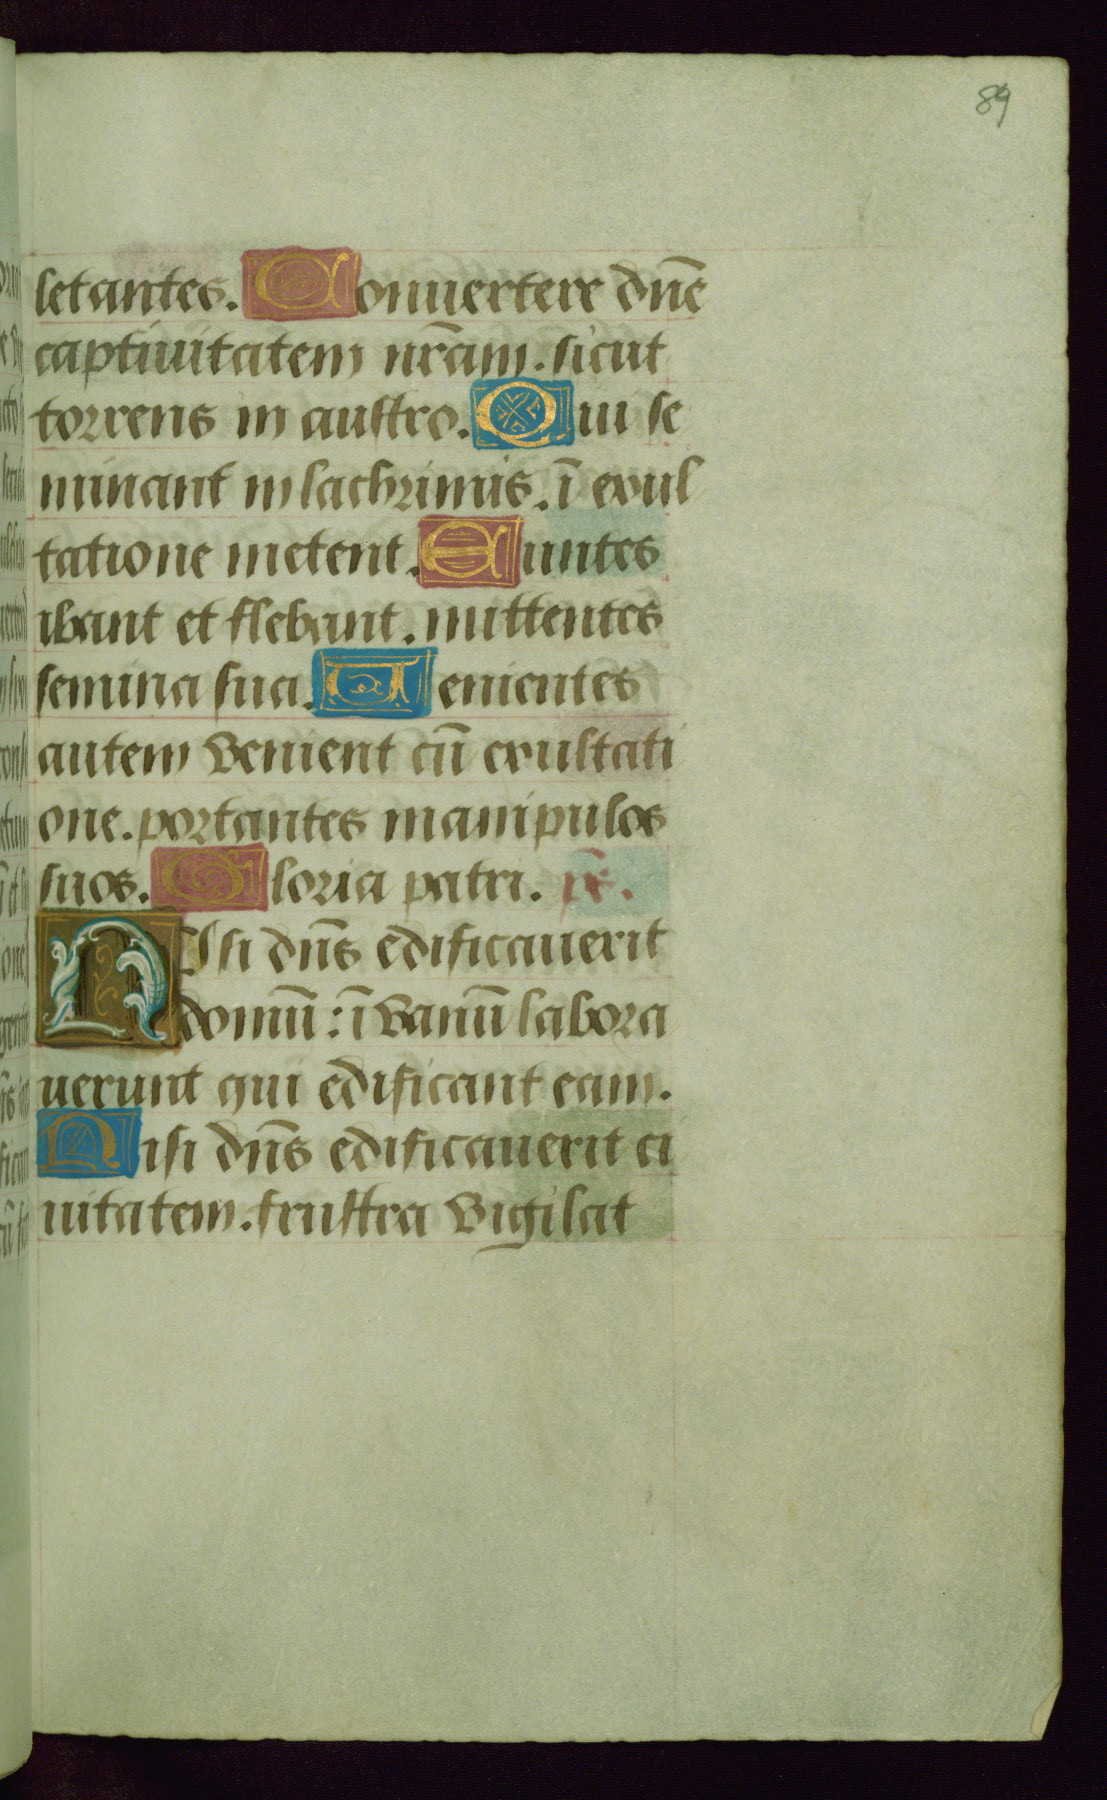 89
letantes. Conuertere dn̄e
captiuitatem nr̄am. sicut
torrens in austro. Qui se
minant in lachrimis. ī exul
tatione metent. Euntes
ibant et flebant. mittentes
semina sua. Uenientes
autem venient cū exultati
one. portantes manipulos
suos. Gloria patri. ps̄.
NIsi dn̄s edificauerit
domū: ī vanū labora
uerunt qui edificant eam.
Nisi dn̄s edificauerit ci
uitatem. frustra vigilat